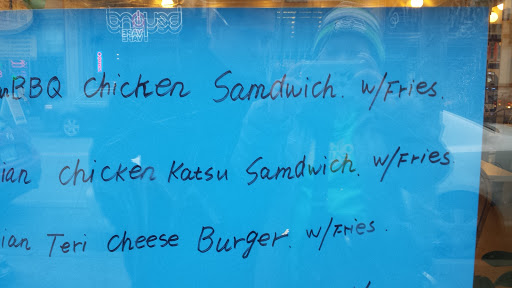 nBBQ chicken Samdwich. w/Fries.
ian chicken Katsu Samdwich. w/Fries
ian Teri Cheese Burger. w/Fries.